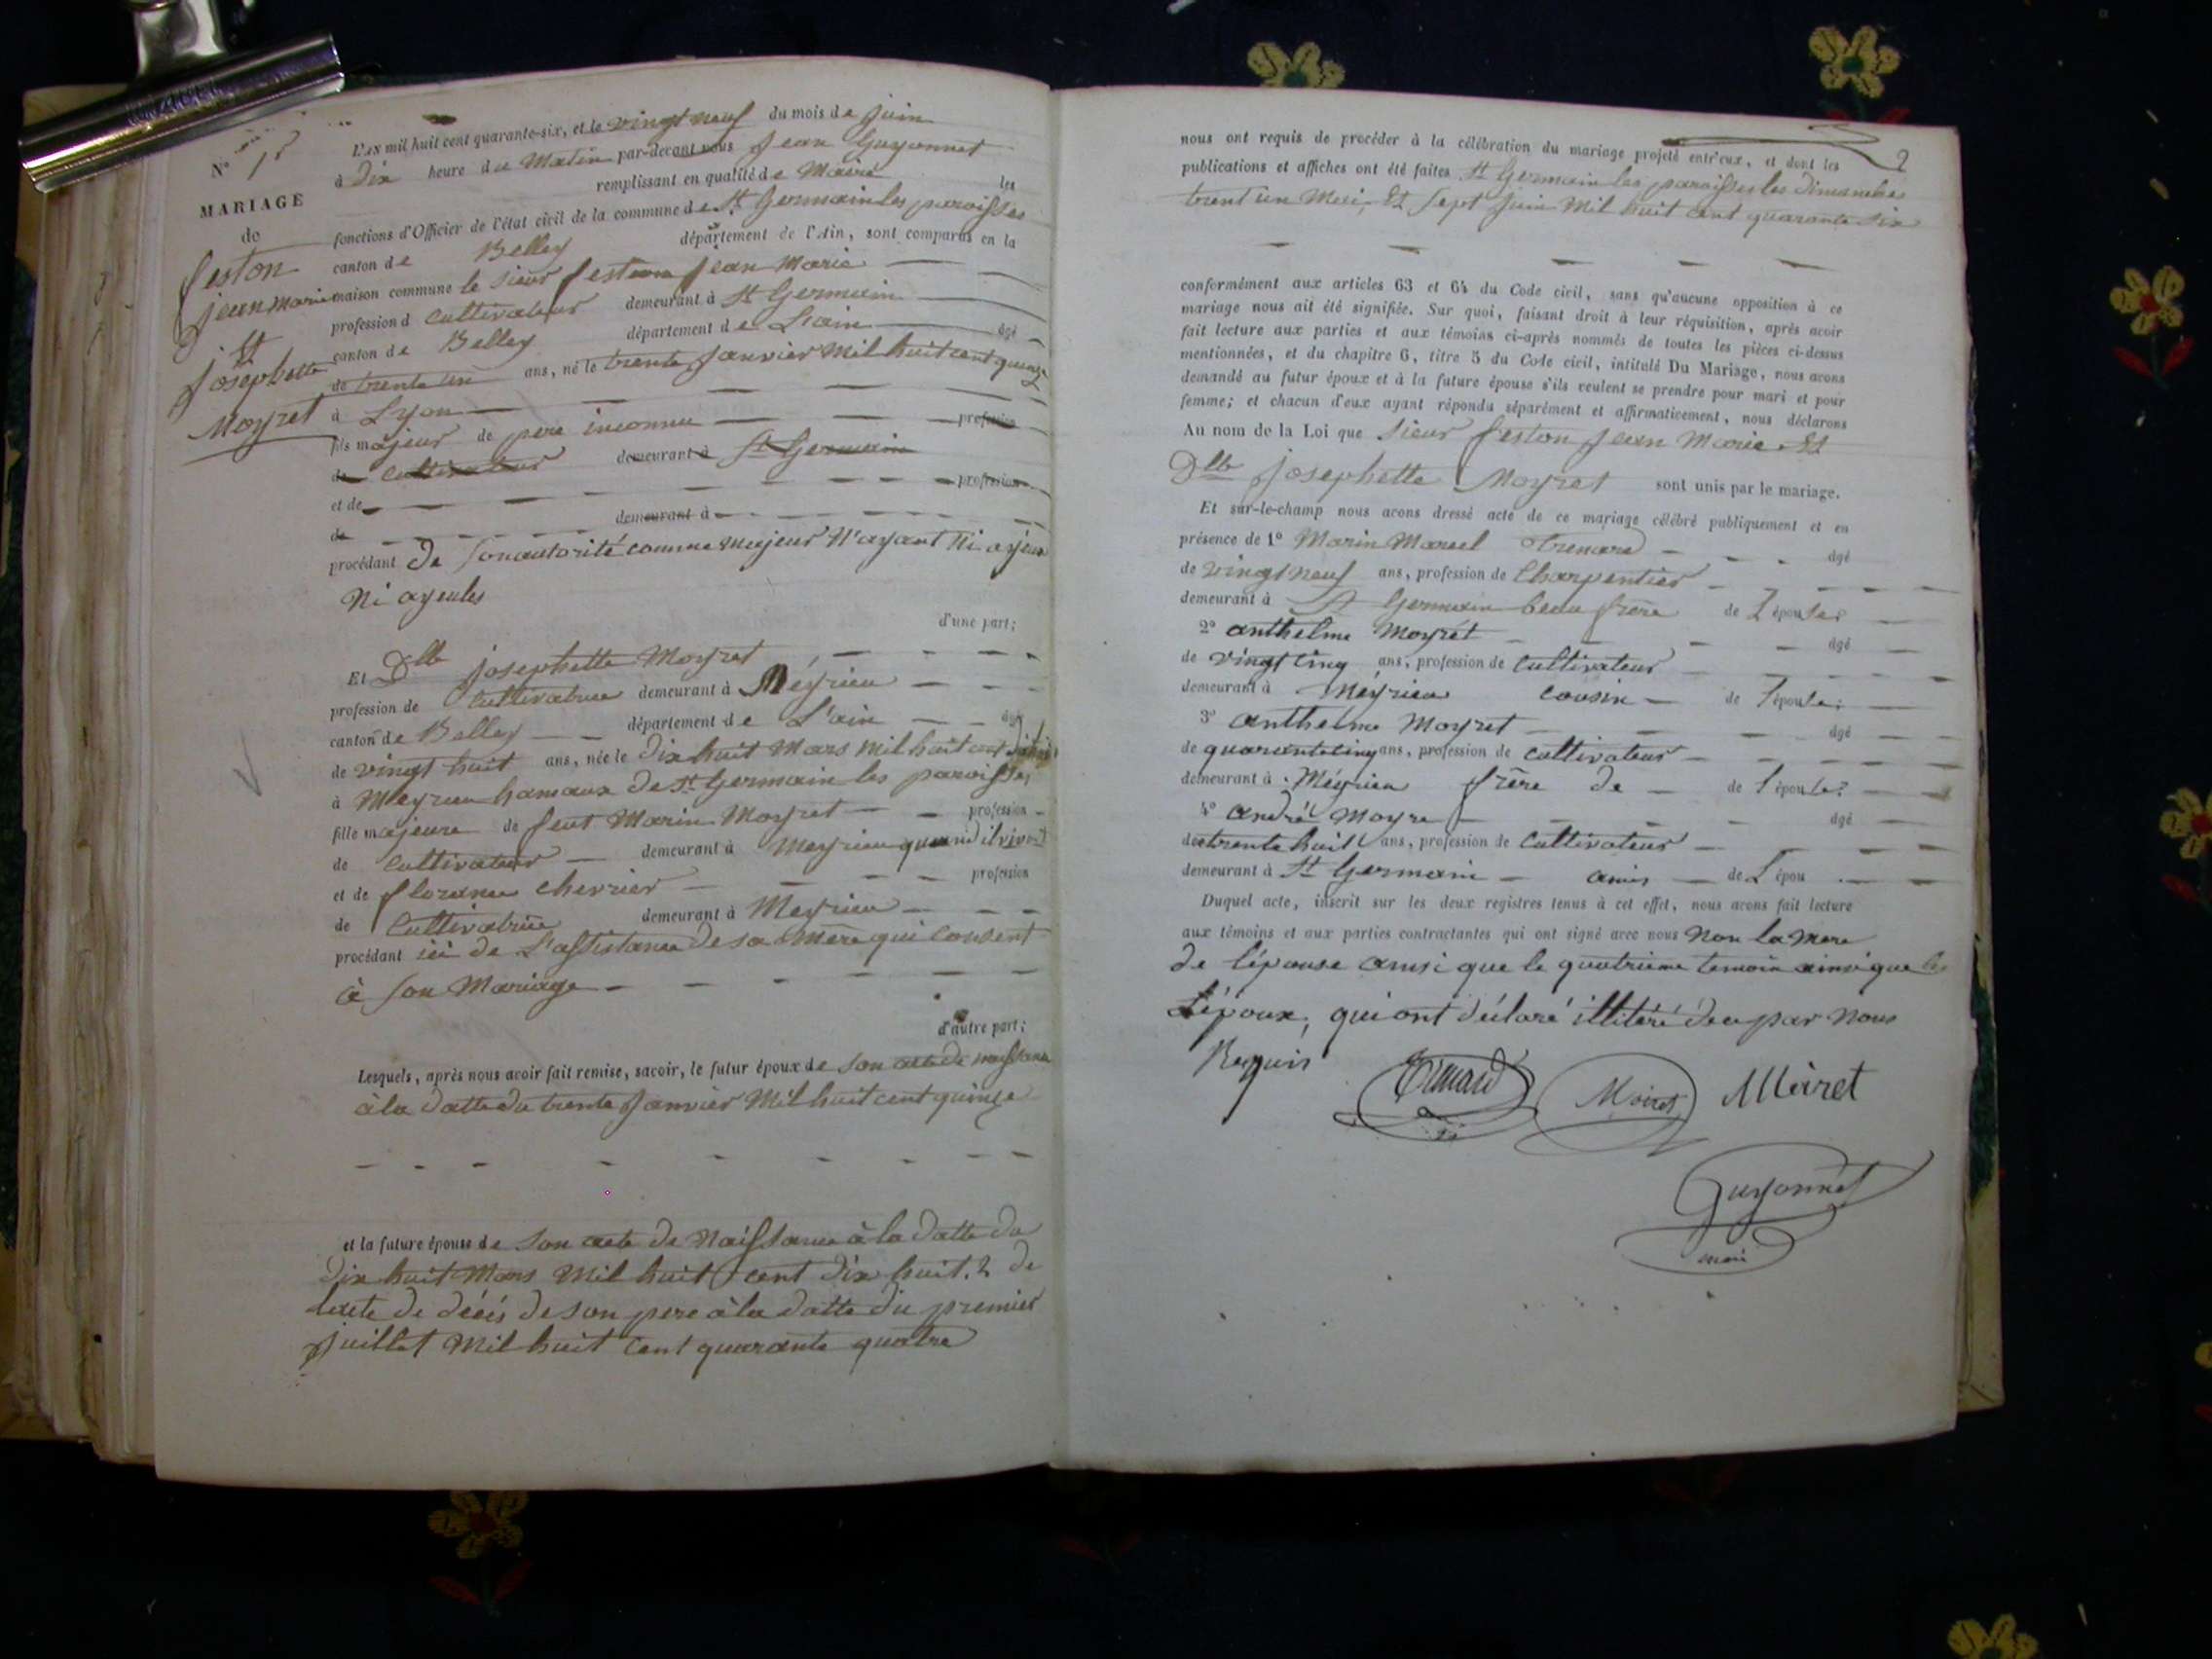 N° 15
MARIAGE
de
feston
jean marie
Et
Josephette
Moyret
L'an mil huit cent quarante-six, et le vingt neuf du mois de juin
à Dix heure du Matin par-devant nous Jean Guyonnet
remplissant en qualité de Maire les
fonctions d'Officier de l'état civil de la commune de St Germain les paroisses
canton de Belley département de l'Ain, sont comparus en la
maison commune le sieur feston Jean Marie
profession d cultivateur demeurant à St Germain
canton de Belley département de L'ain âgé
de trente un ans, né le trente Janvier Mil huit cent quinze
à Lyon
fils majeur de pere inconnu profession
de cultivateur demeurant à St Germain
et de profession
de demeurant à
procédant de son autorité comme majeur N'ayant Ni ayeux
Ni ayeules
d'une part;
Et Dlle josephette Moyret
profession de Cultivatrice demeurant à Méyrieu
canton de Belley département de L'ain âgé
de vingt huit ans, née le Dix huit Mars Mil huit cent dix huit
à Meyrieu hamaux de St Germain les paroisses
fille majeure de feut Marin Moyret profession
de Cultivateur demeurant à Meyrieu quand il vivait
et de florance Chevrier profession
de Cultivatrice demeurant à Meyrieu
procédant ici de L'assistance de sa mère qui consent
à son Mariage
d'autre part;
Lesquels, après nous avoir fait remise, savoir, le futur époux de son acte de naissance
à la datte du trente Janvier Mil huit cent quinze
et la future épouse de son acte de Naissance à la datte du
Dix huit Mars Mil huit cent dix huit. 2 de
lacte de décés de son pere à la datte du premier
Juillet Mil huit cent quarante quatre
2
nous ont requis de procéder à la célébration du mariage projeté entr'eux, et dont les
publications et affiches ont été faites St Germain les paroisses les Dimanches
trent un Mai, Et sept juin Mil huit cent quarante six
conformément aux articles 63 et 64 du Code civil, sans qu'aucune opposition à ce
mariage nous ait été signifiée. Sur quoi, faisant droit à leur réquisition, après avoir
fait lecture aux parties et aux témoins ci-après nommés de toutes les pièces ci-dessus
mentionnées, et du chapitre 6, titre 5 du Code civil, intitulé Du Mariage, nous avons
demandé au futur époux et à la future épouse s'ils veulent se prendre pour mari et pour
femme; et chacun d'eux ayant répondu séparément et affirmativement, nous déclarons
Au nom de la Loi que Sieur feston Jean Marie Et
Dlle josephette Moyret sont unis par le mariage.
Et sur-le-champ nous avons dressé acte de ce mariage célébré publiquement et en
présence de 1° Marin Marcel Trenard âgé
de vingt neuf ans, profession de Charpentier
demeurant à St Germain beau frère de L'épouse;
2° anthelme Moyrét âgé
de vingt cinq ans, profession de Cultivateur
demeurant à Méyrieu cousin de l'épouse;
3° anthelme Moyret âgé
de quarante cinq ans, profession de cultivateur
demeurant à Méyrieu frère de de l'épouse;
4° andré Moyre âgé
de trente huit ans, profession de Cultivateur
demeurant à St Germain amis de L'épou
Duquel acte, inscrit sur les deux registres tenus à cet effet, nous avons fait lecture
aux témoins et aux parties contractantes qui ont signé avec nous Non la mere
de l'épouse ainsi que le quatrieme temoin ainsi que les
L'époux, qui ont déclaré illitéré de ce par Nous
Requis
Trenard Moiret Moiret
Guyonnet
maire